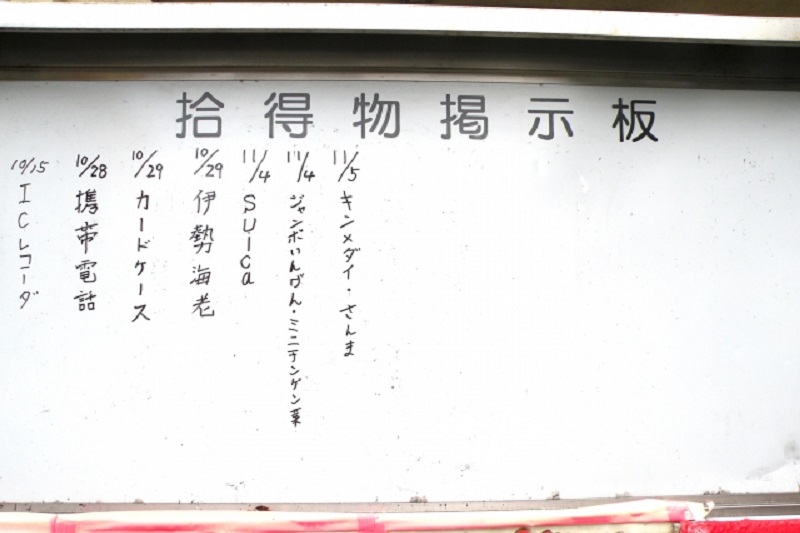 拾得物掲示板
11/5 キンメダイ・さんま
11/4 ジャンボいんげん・ミニチンゲン菜
11/4 SUICa
10/29 伊勢海老
10/29 カードケース
10/28 携帯電話
10/15 ICレコーダ